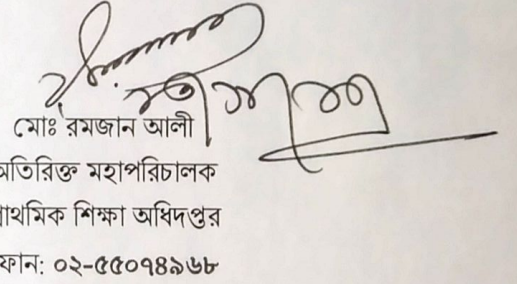 মোঃ রমজান আলী
অতিরিক্ত মহাপরিচালক
প্রাথমিক শিক্ষা অধিদপ্তর
ফোন: ০২-৫৫০৭৪৯৬৮